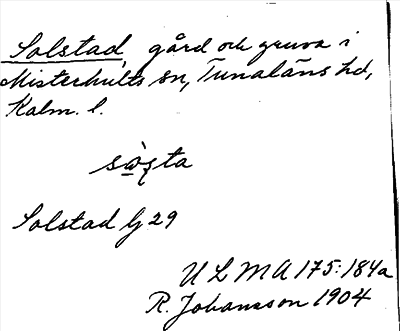 Solstad, gård och gruva i
Misterhults sn, Tunaläns hd,
Kalm. l.
Solstad Gj 29
U L M A 175:184a
R. Johansson 1904